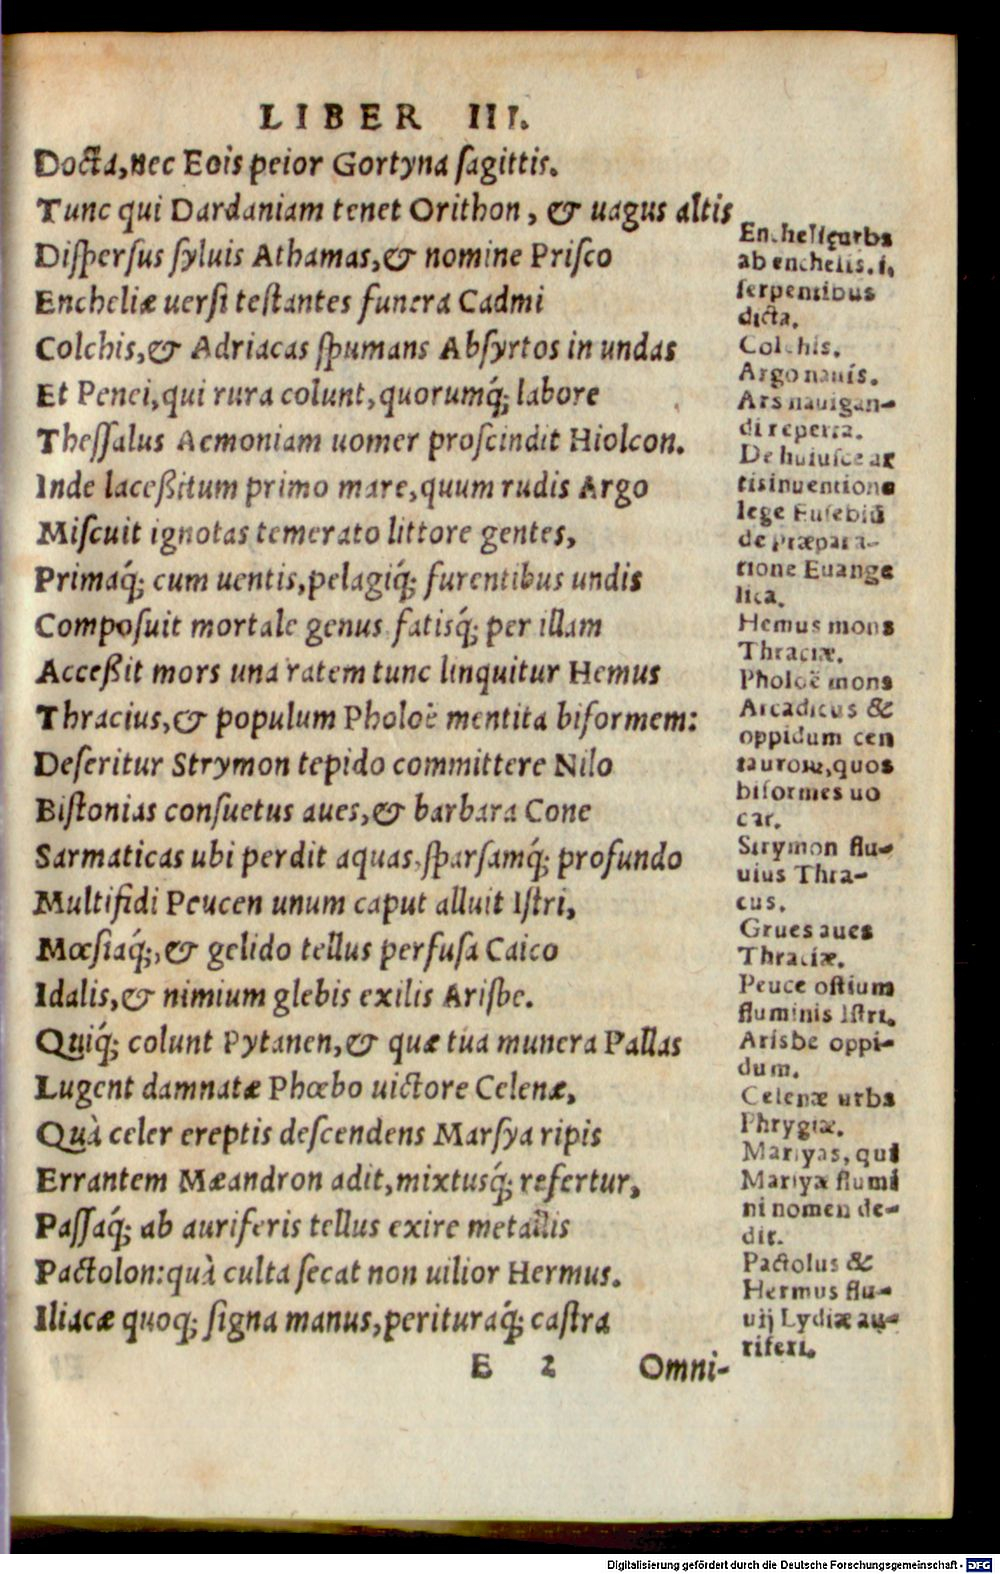 LIBER III.
Docta, nec Eois peior Gortyna sagittis.
Tunc qui Dardaniam tenet Orithon, & uagus altis
Dispersus syluis Athamas, & nomine Prisco
Encheliæ uersi testantes funera Cadmi
Colchis, & Adriacas spumans Absyrtos in undas
Et Penei, qui rura colunt, quorumq́; labore
Thessalus Aemoniam uomer proscindit Hiolcon.
Inde laceßitum primo mare, quum rudis Argo
Miscuit ignotas temerato littore gentes,
Primaq́; cum uentis, pelagiq́; furentibus undis
Composuit mortale genus fatisq́; per illam
Acceßit mors una ratem tunc linquitur Hemus
Thracius, & populum Pholoë mentita biformem:
Deseritur Strymon tepido committere Nilo
Bistonias consuetus aues, & barbara Cone
Sarmaticas ubi perdit aquas, sparsamq́; profundo
Multifidi Peucen unum caput alluit Istri,
Mœsiaq́;, & gelido tellus perfusa Caico
Idalis, & nimium glebis exilis Arisbe.
Quiq́; colunt Pytanen, & quæ tua munera Pallas
Lugent damnatæ Phœbo uictore Celenæ,
Quà celer ereptis descendens Marsya ripis
Errantem Mæandron adit, mixtusq́; refertur,
Passaq́; ab auriferis tellus exire metallis
Pactolon: quà culta secat non uilior Hermus.
Iliacæ quoq; signa manus, perituraq́; castra
E 2 Omni-
Encheliç urbs
ab enchelis. i.
serpentibus
dicta.
Colchis.
Argo nauis.
Ars nauigan-
di reperta.
De huiusce ar
tis inuentione
lege Eusebiũ
de præpara-
tione Euange
lica.
Hemus mons
Thraciæ.
Pholoë mons
Arcadicus &
oppidum cen
taurorum, quos
biformes uo
cat.
Strymon flu-
uius Thra-
cus.
Grues aues
Thraciæ.
Peuce ostium
fluminis Istri.
Arisbe oppi-
dum.
Celenæ urbs
Phrygiæ.
Marsyas, qui
Marsyæ flumi
ni nomen de-
dit.
Pactolus &
Hermus flu-
uij Lydiæ au-
riferi.
Digitalisierung gefördert durch die Deutsche Forschungsgemeinschaft - DFG